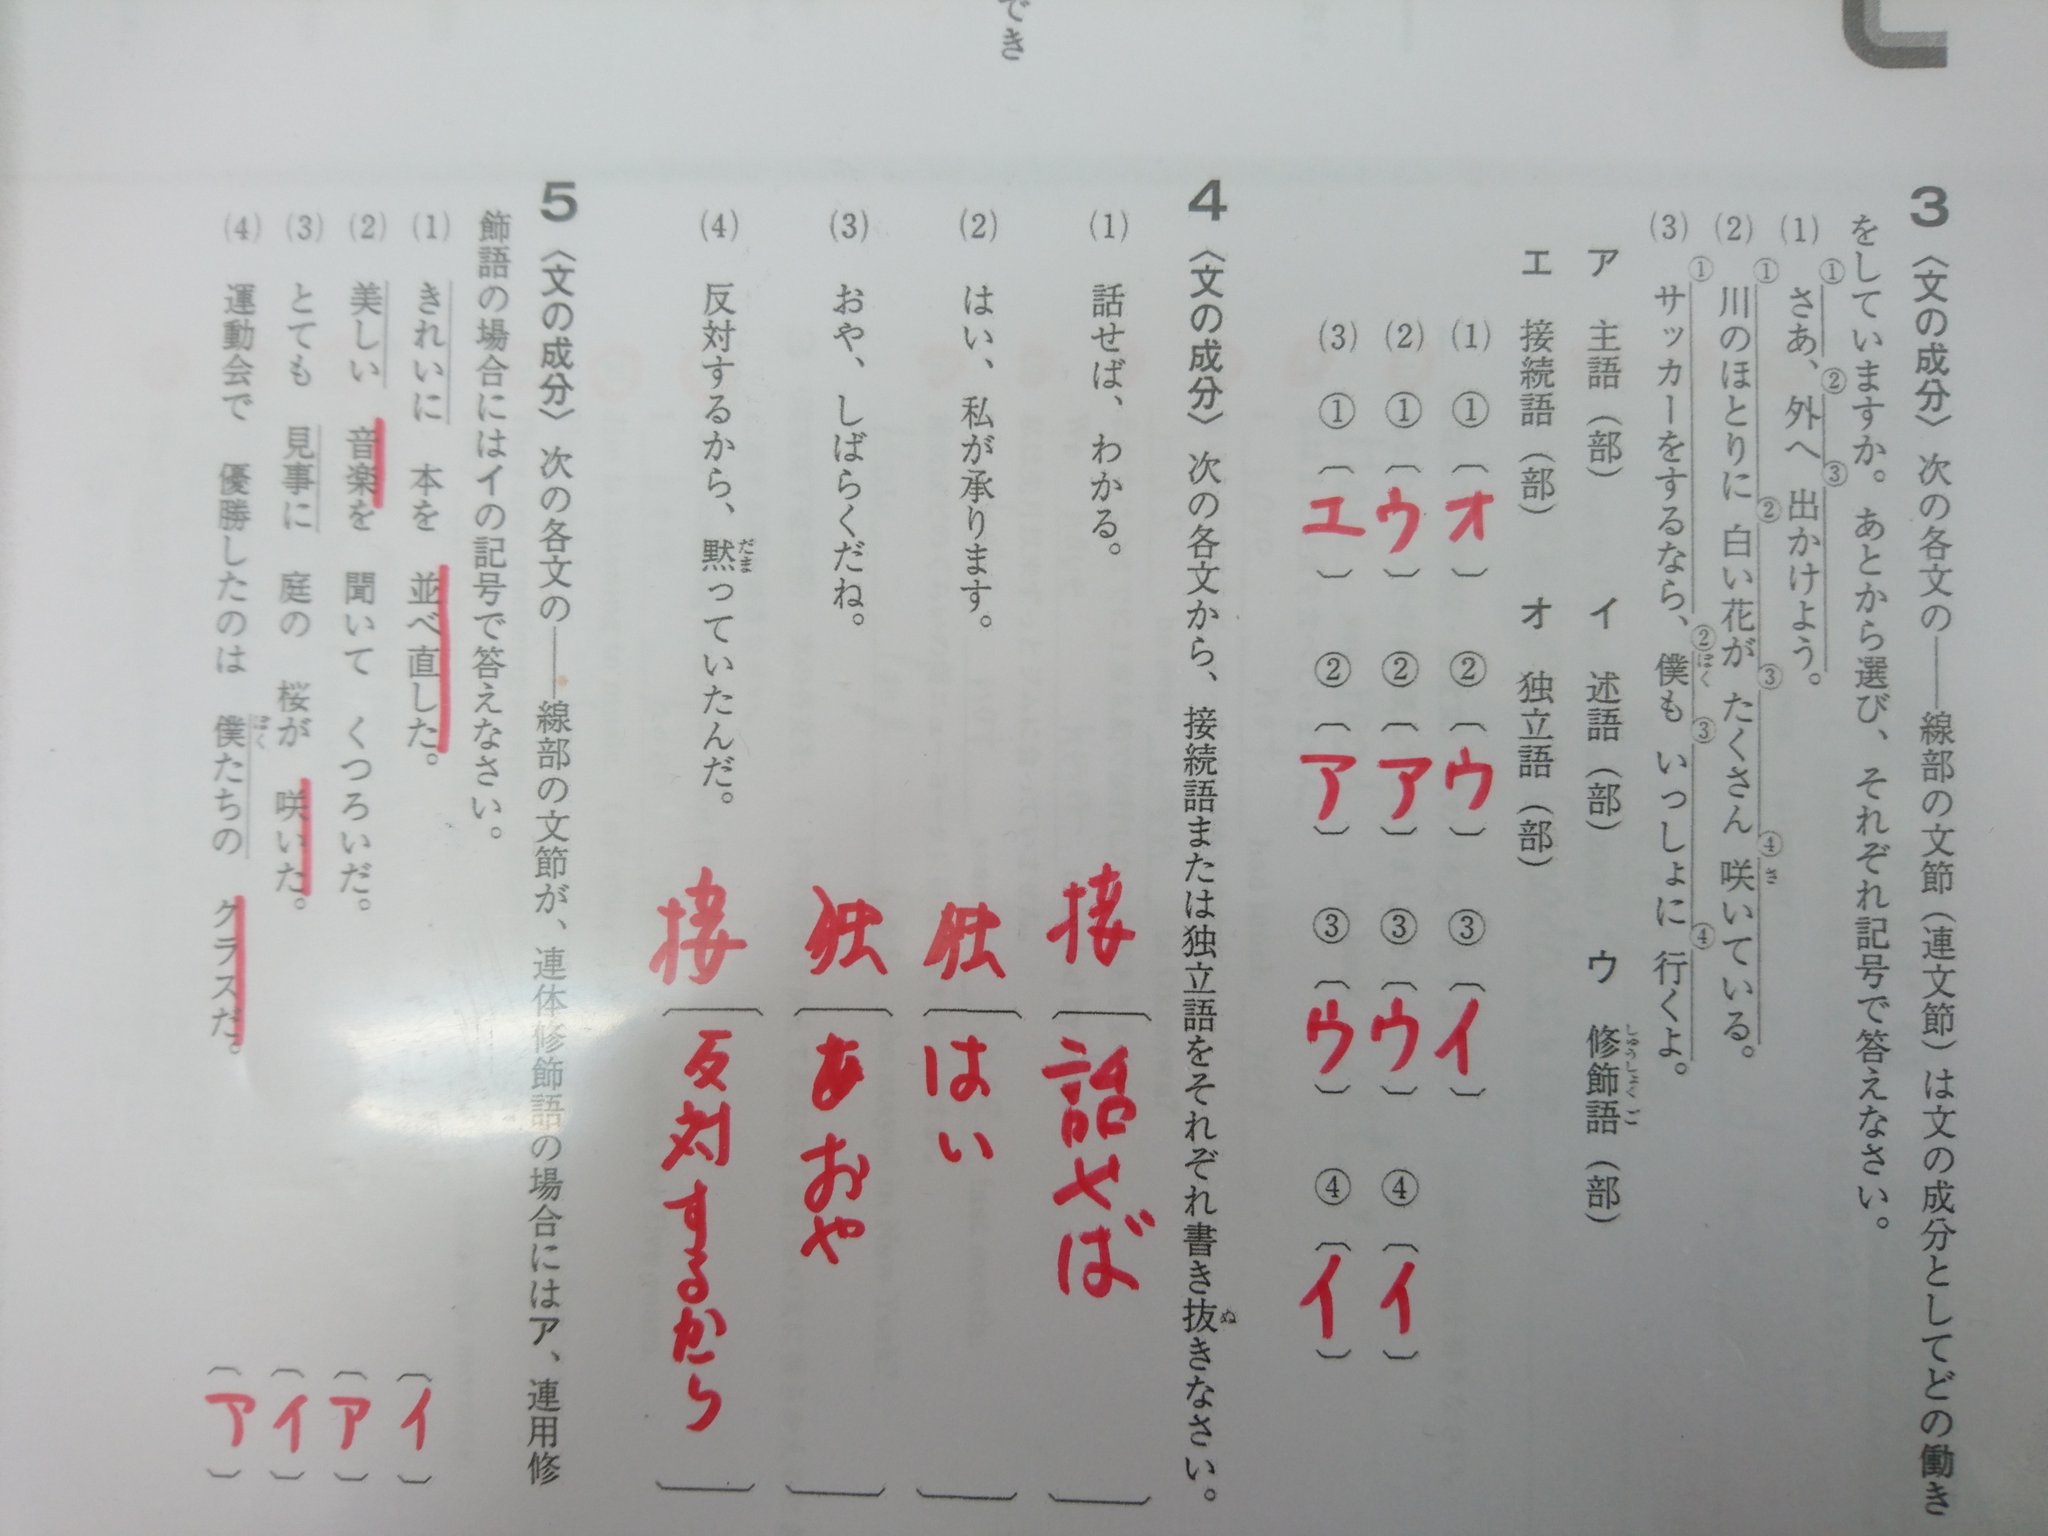 でき
3 〈文の成分〉 次の各文の――線部の文節(連文節)は文の成分としてどの働き
をしていますか。あとから選び、それぞれ記号で答えなさい。
(1) ①さあ、②外へ ③出かけよう。
(2) ①川のほとりに ②白い花が ③たくさん ④咲いている。
き
(3) ①サッカーをするなら、②僕も ③いっしょに ④行くよ。
ぼく
ア 主語(部) イ 述語(部) ウ 修飾語(部)
しゅうしょくご
エ 接続語(部) オ 独立語(部)
(1) ①〔オ〕 ②〔ウ〕 ③〔イ〕
(2) ①〔ウ〕 ②〔ア〕 ③〔ウ〕 ④〔イ〕
(3) ①〔エ〕 ②〔ア〕 ③〔ウ〕 ④〔イ〕
4 〈文の成分〉 次の各文から、接続語または独立語をそれぞれ書き抜きなさい。
ぬ
(1) 話せば、わかる。 接〔話せば〕
(2) はい、私が承ります。 独〔はい〕
(3) おや、しばらくだね。 独〔あおや〕
(4) 反対するから、黙っていたんだ。 接〔反対するから〕
だま
5 〈文の成分〉 次の各文の――線部の文節が、連体修飾語の場合にはア、連用修
飾語の場合にはイの記号で答えなさい。
(1) きれいに 本を 並べ直した。 〔イ〕
(2) 美しい 音楽を 聞いて くつろいだ。 〔ア〕
(3) とても 見事に 庭の 桜が 咲いた。 〔イ〕
(4) 運動会で 優勝したのは 僕たちの クラスだ。 〔ア〕
ぼく